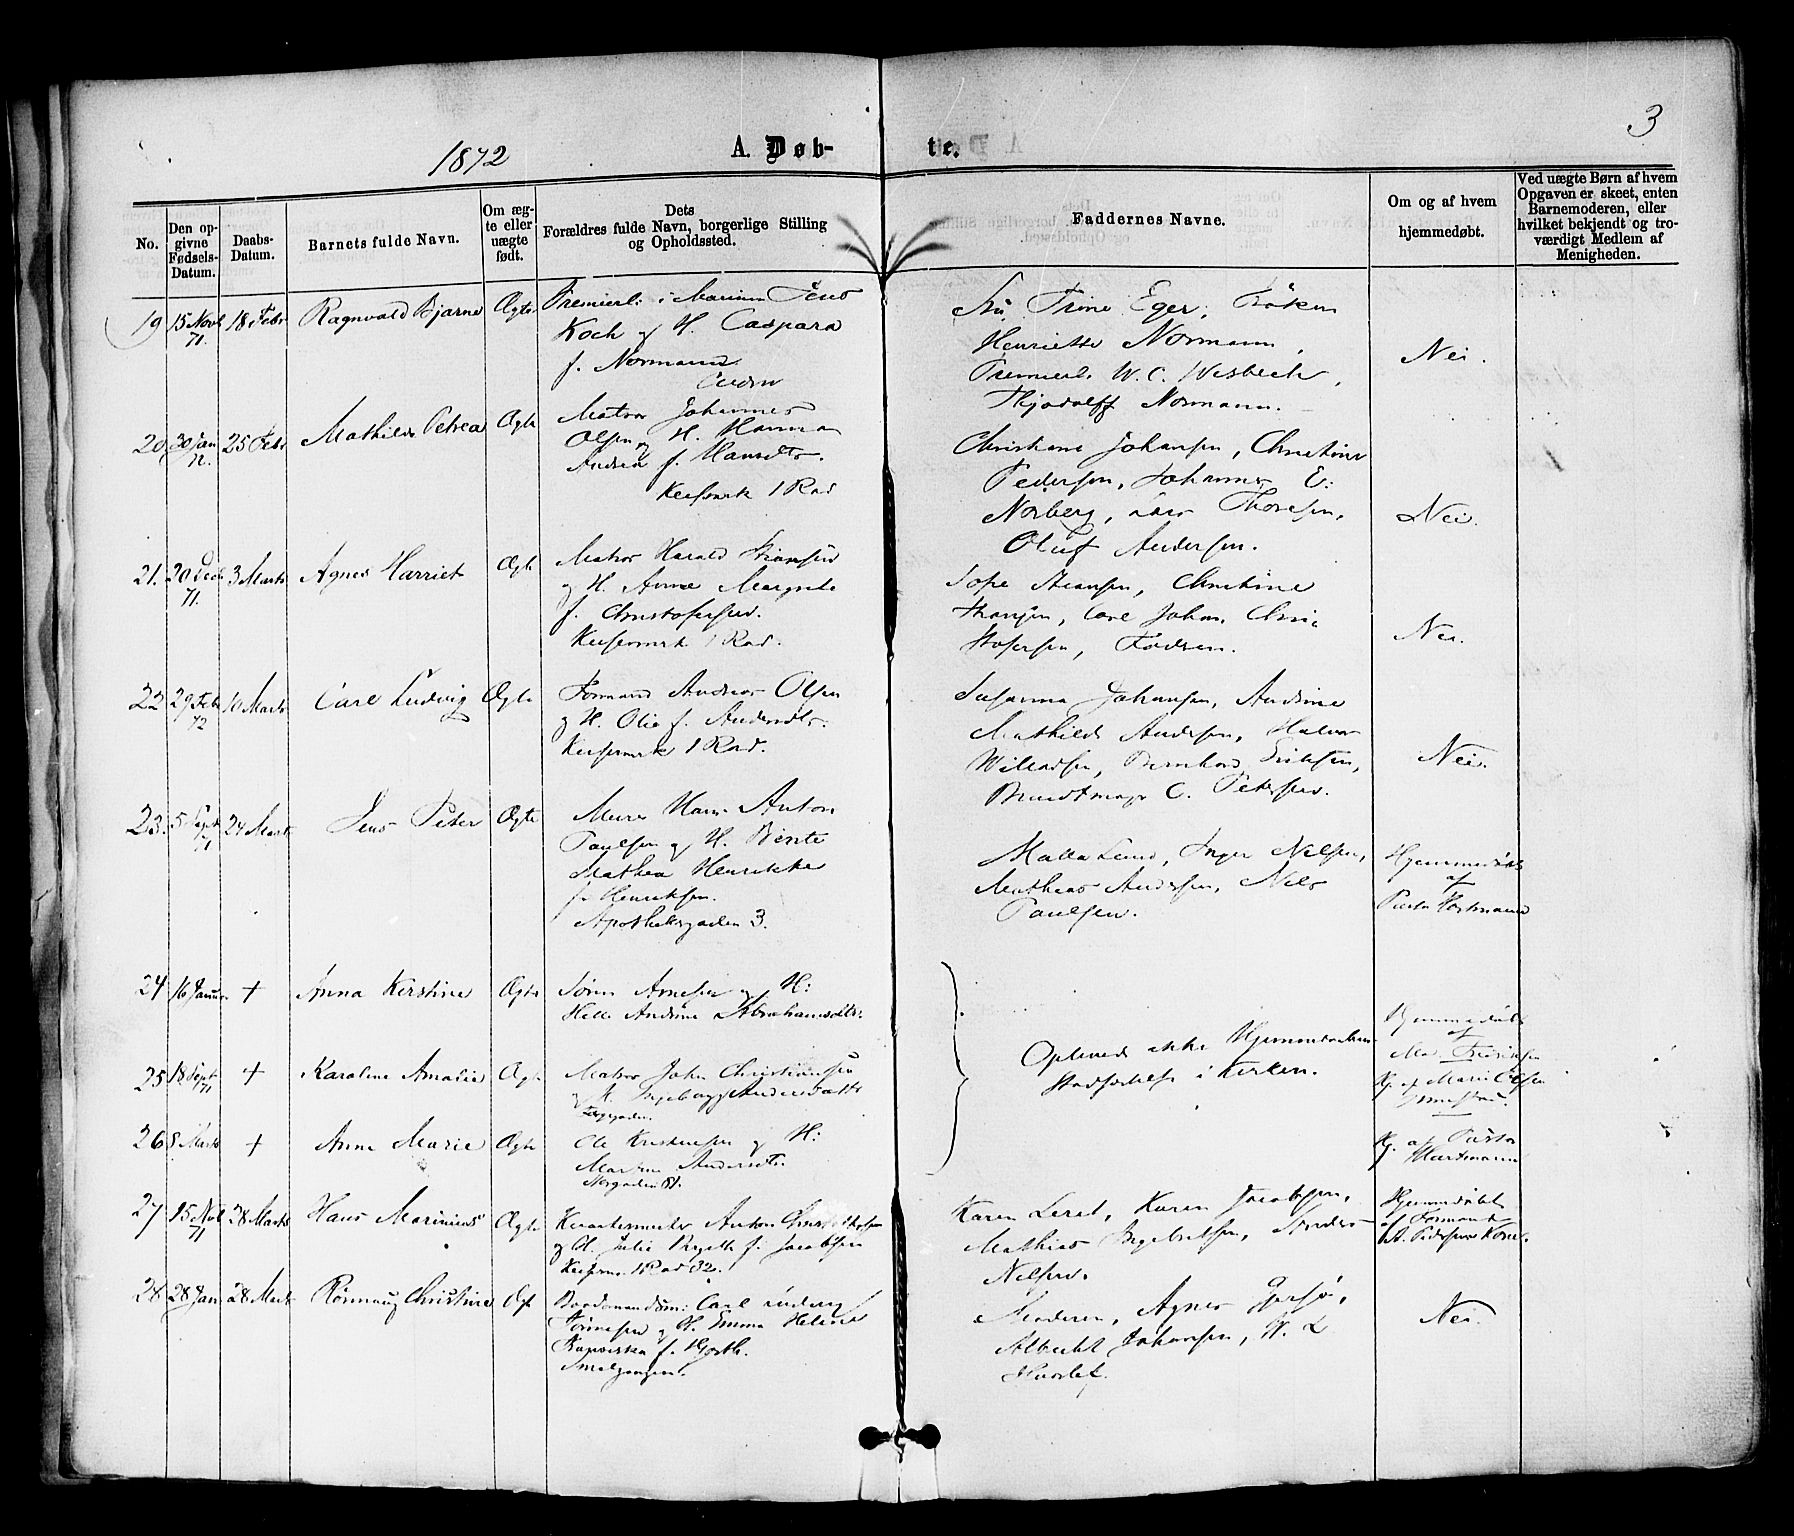 3
1872
A. Døb-
te.
No.
Den op-
givne
Fødsels-
Datum.
Daabs-
Datum.
Barnets fulde Navn.
Om æg-
te eller
uægte
født.
Dets
Forældres fulde Navn, borgerlige Stilling
og Opholdssted.
Faddernes Navne.
Om og af hvem
hjemmedøbt.
Ved uægte Børn af hvem
Opgaven er skeet, enten
Barnemoderen, eller
hvilket bekjendt og tro-
værdigt Medlem af
Menigheden.
19 15 Novb 71. 18 Febr Ragnvald Bjarne Ægte
Premierl: i Marinen Jens
Koch og H. Caspara
f. Normann
Fru Trine Eger, Frøken
Henriette Normann,
Premierl. W. C. Wesbech,
Thjodolff Normann.
Nei.
20. 30 Jan 72. 25 Febr Mathilde Petrea Ægte
Matros Johannes
Olsen og H. Hanna
Andrea f. Hansdtr.
1 Rad
Christiane Johansen, Christine
Pedersen, Johannes E.
Norberg, Lars Thoresen,
Oluf Andersen.
Nei.
21. 20 Dec 71. 3 Marts Agnes Harriet Ægte
Matros Harald
og H. Anne Margrete
f. Christofersen.
1 Rad.
Christine
Carl Johan Chri-
stofersen,
Nei.
22 29 Febr 72 10 Marts Carl Ludvig Ægte
Formand Andreas Olsen
og H. Olia f. Andersdtr.
1 Rad.
Susanna Johansen, Andrine
Mathilde Andersen, Halvor
Willadsen, Bernhard Eriksen,
C. Petersen.
Nei.
23. 5 Sept 71 24 Marts Jens Peter Ægte
Murer Hans Anton
Paulsen og H. Bente
Mathea Henrikke
f. Henriksen.
Apothekergaden 3.
Malla Lund, Inger Nilsen,
Mathias Andersen, Nils
Paulsen.
Hjemmedøbt
af
Pastor Hartmann
24 16 Januar + Anna Kirstine Ægte
Søren Arnesen og H:
Helle Andrine Abrahamsdtr:
Hjemmedøbt
af
Ma. Fredriksen
25 18 Sept 71 + Karoline Amalie Ægte
Matros John Christiansen
og H. Ingeborg Andersdatter
Oplevede ikke Hjemmedaabens
Stadfæstelse i Kirken.
Hj. af Marie Olsen
26 8 Marts + Anne Marie Ægte
Ole Kristensen og H:
Martine Andersdtr.
Hj. af Pastor
Hartmann
27 15 Nov 71 28 Marts Hans Marinius Ægte
Kvartermester Anton
og H. Julie f. Jacobsen
1 Rad 32.
Karen Karen Jacobsen,
Mathias Ingebretsen,
Nilsen.
Hjemmedøbt
af Formand
A. Pedersens Kone.
28 28 Jan 28 Marts Rønnaug Christine Ægte
Carl Ludvig
Tønnesen og H. Emma Helene
f. Hjorth.
Smalgangen.
Moderen, Agnes Gjersø,
Albrecht Johansen, W. L.
Nei.